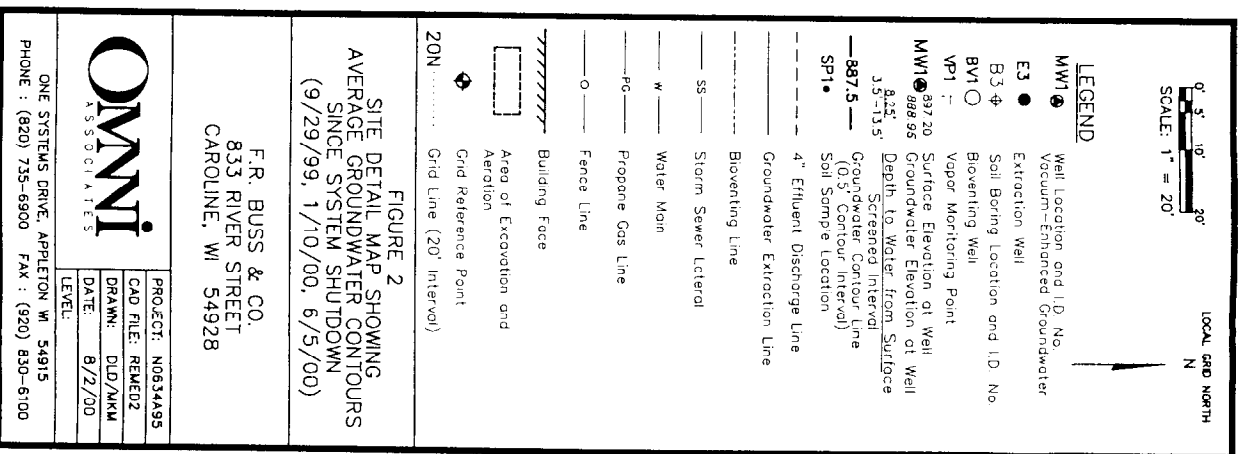 0' 5' 10' 20'
SCALE: 1" = 20'
LOCAL GRID NORTH
N
LEGEND
MW1 Well Location and I.D. No.
Vacuum-Enhanced Groundwater
E3 Extraction Well
B3 Soil Boring Location and I.D. No.
BV1 Bioventing Well
VP1 Vapor Monitoring Point
MW1 897.20 Surface Elevation at Well
888.95 Groundwater Elevation at Well
8.25' Depth to Water from Surface
3.5'-13.5' Screened Interval
887.5 Groundwater Contour Line
(0.5' Contour Interval)
SP1 Soil Sample Location
4" Effluent Discharge Line
Groundwater Extraction Line
Bioventing Line
SS Storm Sewer Lcteral
W Water Main
PG Propane Gas Line
O Fence Line
Building Face
Area of Excavation and
Aeration
Grid Reference Point
20N Grid Line (20' Interval)
FIGURE 2
SITE DETAIL MAP SHOWING
AVERAGE GROUNDWATER CONTOURS
SINCE SYSTEM SHUTDOWN
(9/29/99, 1/10/00, 6/5/00)
F.R. BUSS & CO.
833 RIVER STREET
CAROLINE, WI 54928
OMNNI
ASSOCIATES
PROJECT: N0634A95
CAD FILE: REMED2
DRAWN: DLD/MKM
DATE: 8/2/00
LEVEL:
ONE SYSTEMS DRIVE, APPLETON WI 54915
PHONE : (820) 735-6900 FAX : (920) 830-6100